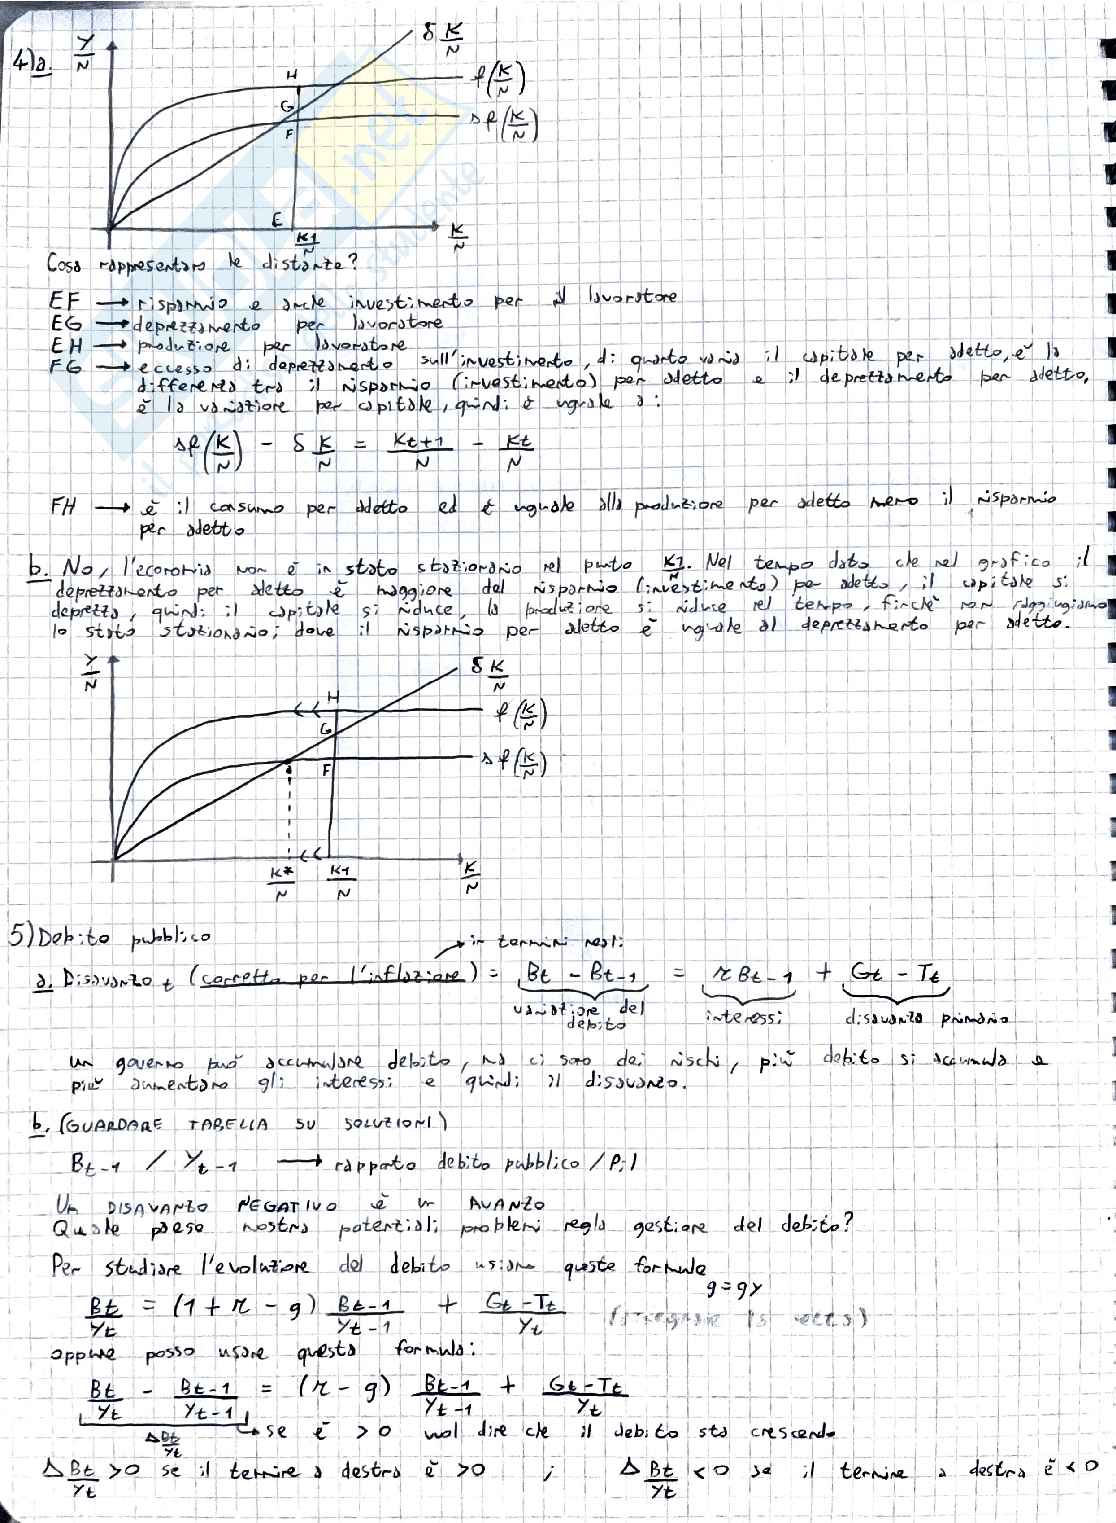 4) a. Y/N
δ K/N
f(K/N)
sf(K/N)
H
G
F
E
K1/N
K/N
Cosa rappresentano le distanze?
EF → risparmio e anche investimento per il lavoratore
EG → deprezzamento per lavoratore
EH → produzione per lavoratore
FG → eccesso di deprezzamento sull'investimento, di quanto varia il capitale per adetto, è la
differenza tra il risparmio (investimento) per adetto e il deprezzamento per adetto,
è la variazione per capitale, quindi è uguale a:
sf(K/N) - δ K/N = Kt+1/N - Kt/N
FH → è il consumo per adetto ed è uguale alla produzione per adetto meno il risparmio
per adetto
b. No, l'economia non è in stato stazionario nel punto K1/N. Nel tempo dato che nel grafico il
deprezzamento per adetto è maggiore del risparmio (investimento) per adetto, il capitale si
deprezza, quindi il capitale si riduce, la produzione si riduce nel tempo, finchè non raggiungiamo
lo stato stazionario; dove il risparmio per adetto è uguale al deprezzamento per adetto.
Y/N
δ K/N
f(K/N)
sf(K/N)
H
G
F
K*/N
K1/N
K/N
5) Debito pubblico
in termini reali
a. Disavanzo t (corretto per l'inflazione) = Bt - Bt-1 = r Bt-1 + Gt - Tt
variazione del debito
interessi
disavanzo primario
un governo può accumulare debito, ma ci sono dei rischi, più debito si accumula e
più aumentano gli interessi e quindi il disavanzo.
b. (GUARDARE TABELLA SU SOLUZIONI)
Bt-1 / Yt-1 → rapporto debito pubblico / Pil
Un DISAVANZO NEGATIVO è un AVANZO
Quale paese mostra potenziali problemi negla gestione del debito?
Per studiare l'evoluzione del debito usiamo queste formule
g = gy
Bt/Yt = (1 + r - g) Bt-1/Yt-1 + Gt - Tt/Yt
oppure posso usare questa formula:
Bt/Yt - Bt-1/Yt-1 = (r - g) Bt-1/Yt-1 + Gt - Tt/Yt
Δ Bt/Yt
se è > 0 vuol dire che il debito sta crescendo
Δ Bt/Yt > 0 se il termine a destra è > 0 ; Δ Bt/Yt < 0 se il termine a destra è < 0